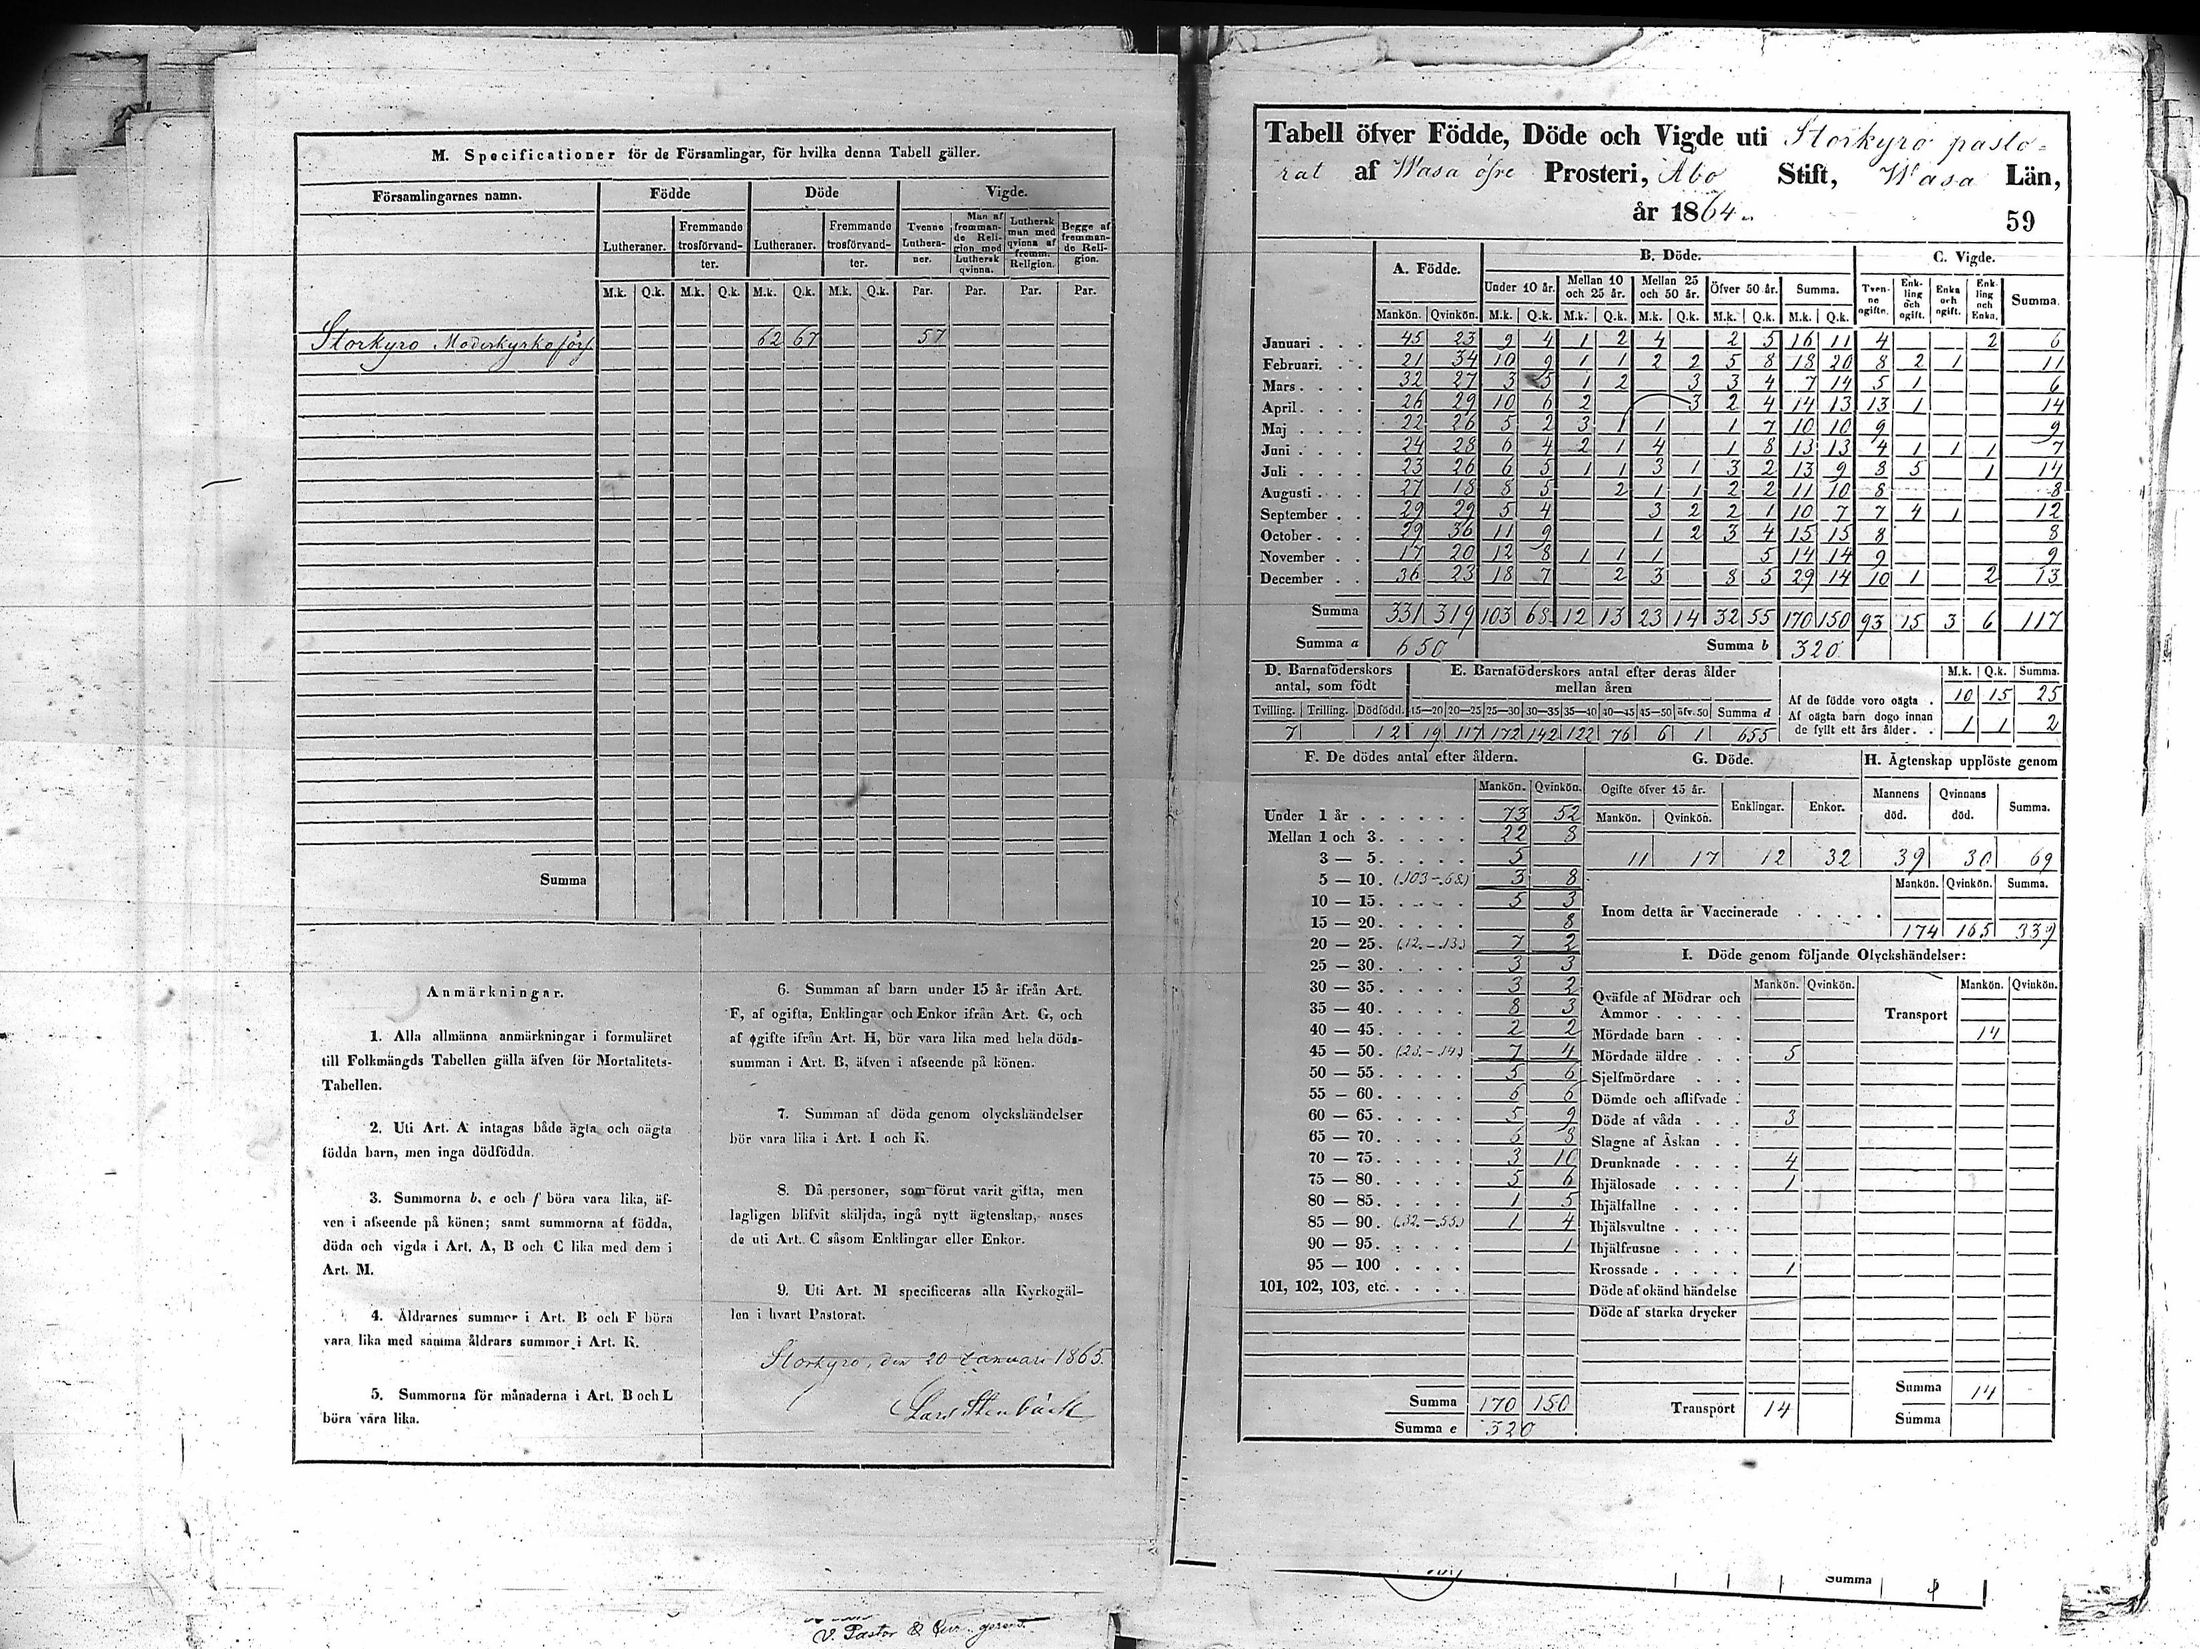 M. Specificationer för de Församlingar, för hvilka denna Tabell gäller.
Församlingarnes namn. Födde Döde Vigde.
Lutheraner. Fremmande trosförvandter. Lutheraner. Fremmande trosförvandter. Tvenne Lutheraner. Man af fremmande Religion med Luthersk qvinna. Luthersk man med qvinna af fremm. Religion. Begge af fremmande Religion.
M.k. Q.k. M.k. Q.k. M.k. Q.k. M.k. Q.k. Par. Par. Par. Par.
Storkyro Moderkyrkoförs 62 67 57
Summa
Anmärkningar.
1. Alla allmänna anmärkningar i formuläret
till Folkmängds Tabellen gälla äfven för Mortalitets-
Tabellen.
2. Uti Art. A intagas både ägta och oägta
födda barn, men inga dödfödda.
3. Summorna b, e och f böra vara lika, äf-
ven i afseende på könen; samt summorna af födda,
döda och vigda i Art. A, B och C lika med dem i
Art. M.
4. Åldrarnes summor i Art. B och F böra
vara lika med samma åldrars summor i Art. K.
5. Summorna för månaderna i Art. B och L
böra vara lika.
6. Summan af barn under 15 år ifrån Art.
F, af ogifta, Enklingar och Enkor ifrån Art. G, och
af gifte ifrån Art. H, bör vara lika med hela döds-
summan i Art. B, äfven i afseende på könen.
7. Summan af döda genom olyckshändelser
bör vara lika i Art. I och K.
8. Då personer, som förut varit gifta, men
lagligen blifvit skiljda, ingå nytt ägtenskap, anses
de uti Art. C såsom Enklingar eller Enkor.
9. Uti Art. M specificeras alla Kyrkogäl-
len i hvart Pastorat.
Storkyro, den 20 Januari 1865.
Lars Stenbäck
V. Pastor
Tabell öfver Födde, Döde och Vigde uti Storkyro pasto-
rat af Wasa öfre Prosteri, Åbo Stift, Wasa Län,
år 1864.
59
A. Födde. B. Döde. C. Vigde.
Under 10 år. Mellan 10 och 25 år. Mellan 25 och 50 år. Öfver 50 år. Summa. Tvenne ogifte. Enkling och ogift. Enka och ogift. Enkling och Enka. Summa.
Mankön. Qvinkön. M.k. Q.k. M.k. Q.k. M.k. Q.k. M.k. Q.k. M.k. Q.k.
Januari . . . 45 23 9 4 1 2 4 2 5 16 11 4 2 6
Februari. . . 21 34 10 9 1 1 2 2 5 8 18 20 8 2 1 11
Mars . . . . 32 27 3 5 1 2 3 3 4 7 14 5 1 6
April . . . . 26 29 10 6 2 3 2 4 14 13 13 1 14
Maj . . . . 22 26 5 2 3 1 1 1 7 10 10 9 9
Juni . . . . 24 28 6 4 2 1 4 1 8 13 13 4 1 1 1 7
Juli . . . . 23 26 6 5 1 1 3 1 3 2 13 9 8 5 1 14
Augusti . . . 27 18 8 5 2 1 1 2 2 11 10 8 8
September . . 29 29 5 4 3 2 2 1 10 7 7 4 1 12
October . . . 29 36 11 9 1 2 3 4 15 15 8 8
November . . 17 20 12 8 1 1 1 5 14 14 9 9
December . . 36 23 18 7 2 3 8 5 29 14 10 1 2 13
Summa 331 319 103 68 12 13 23 14 32 55 170 150 93 15 3 6 117
Summa a 650 Summa b 320
D. Barnaföderskors antal, som födt
Tvilling. Trilling. Dödfödd.
7 12
E. Barnaföderskors antal efter deras ålder mellan åren
15—20 20—25 25—30 30—35 35—40 40—45 45—50 öfv. 50 Summa d
19 117 172 142 122 76 6 1 655
M.k. Q.k. Summa.
Af de födde voro oägta . 10 15 25
Af oägta barn dogo innan
de fyllt ett års ålder. . 1 1 2
F. De dödes antal efter åldern.
Mankön. Qvinkön.
Under 1 år . . . . . . 73 52
Mellan 1 och 3. . . . . 22 8
3 — 5. . . . . 5
5 — 10. (103-68) 3 8
10 — 15. . . . . 5 3
15 — 20. . . . . 8
20 — 25. (12.-13.) 7 2
25 — 30. . . . . 3 3
30 — 35. . . . . 3 2
35 — 40. . . . . 8 3
40 — 45. . . . . 2 2
45 — 50. (23.-14.) 7 4
50 — 55. . . . . 5 6
55 — 60. . . . . 6 6
60 — 65. . . . . 5 9
65 — 70. . . . . 6 8
70 — 75. . . . . 3 10
75 — 80. . . . . 5 6
80 — 85. . . . . 1 5
85 — 90. (32.-55.) 1 4
90 — 95. . . . . 1
95 — 100 . . . .
101, 102, 103, etc. . . . .
Summa 170 150
Summa e 320
G. Döde.
Ogifte öfver 15 år. Enklingar. Enkor.
Mankön. Qvinkön.
11 17 12 32
H. Ägtenskap upplöste genom
Mannens död. Qvinnans död. Summa.
39 30 69
Mankön. Qvinkön. Summa.
Inom detta år Vaccinerade . . . . . 174 165 339
I. Döde genom följande Olyckshändelser:
Mankön. Qvinkön. Mankön. Qvinkön.
Qväfde af Mödrar och
Ammor . . . . .
Mördade barn . . .
Mördade äldre . . . 5
Sjelfmördare . . .
Dömde och aflifvade .
Döde af våda . . . 3
Slagne af Åskan . .
Drunknade . . . . 4
Ihjälosade . . . . 1
Ihjälfallne . . . .
Ihjälsvultne . . . .
Ihjälfrusne . . . .
Krossade . . . . . 1
Döde af okänd händelse
Döde af starka drycker
Transport 14
Transport 14
Summa 14
Summa
Summa